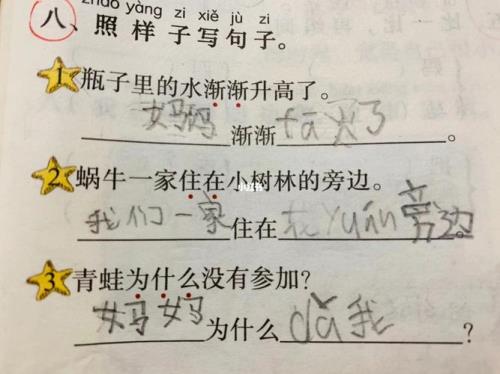 zhào yàng zi xiě jù zi
八、照样子写句子。
1 瓶子里的水渐渐升高了。
妈妈渐渐fā火了。
2 蜗牛一家住在小树林的旁边。
我们一家住在花yuán旁边。
3 青蛙为什么没有参加?
妈妈为什么dǎ我?